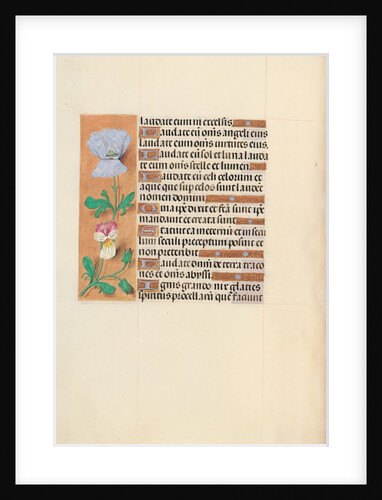 laudate eum in excelsis.
Laudate eum om̄s angeli eius
laudate eum om̄s uirtutes eius.
Laudate eū sol et luna lauda
te eum om̄s stelle et lumen
Laudate eū celi celorum et
aque que sup celos sunt laudēt
nomen domini
Quia ipē dixit et fcā sunt ipē
mandauit et creata sunt
Statuit ea in eternū et in secu
lum seculi preceptum posuit et
non preteribit
Laudate dnm̄ de terra draco
nes et om̄s abyssi
Ignis grando nix glacies
spiritus procellarū que faciunt